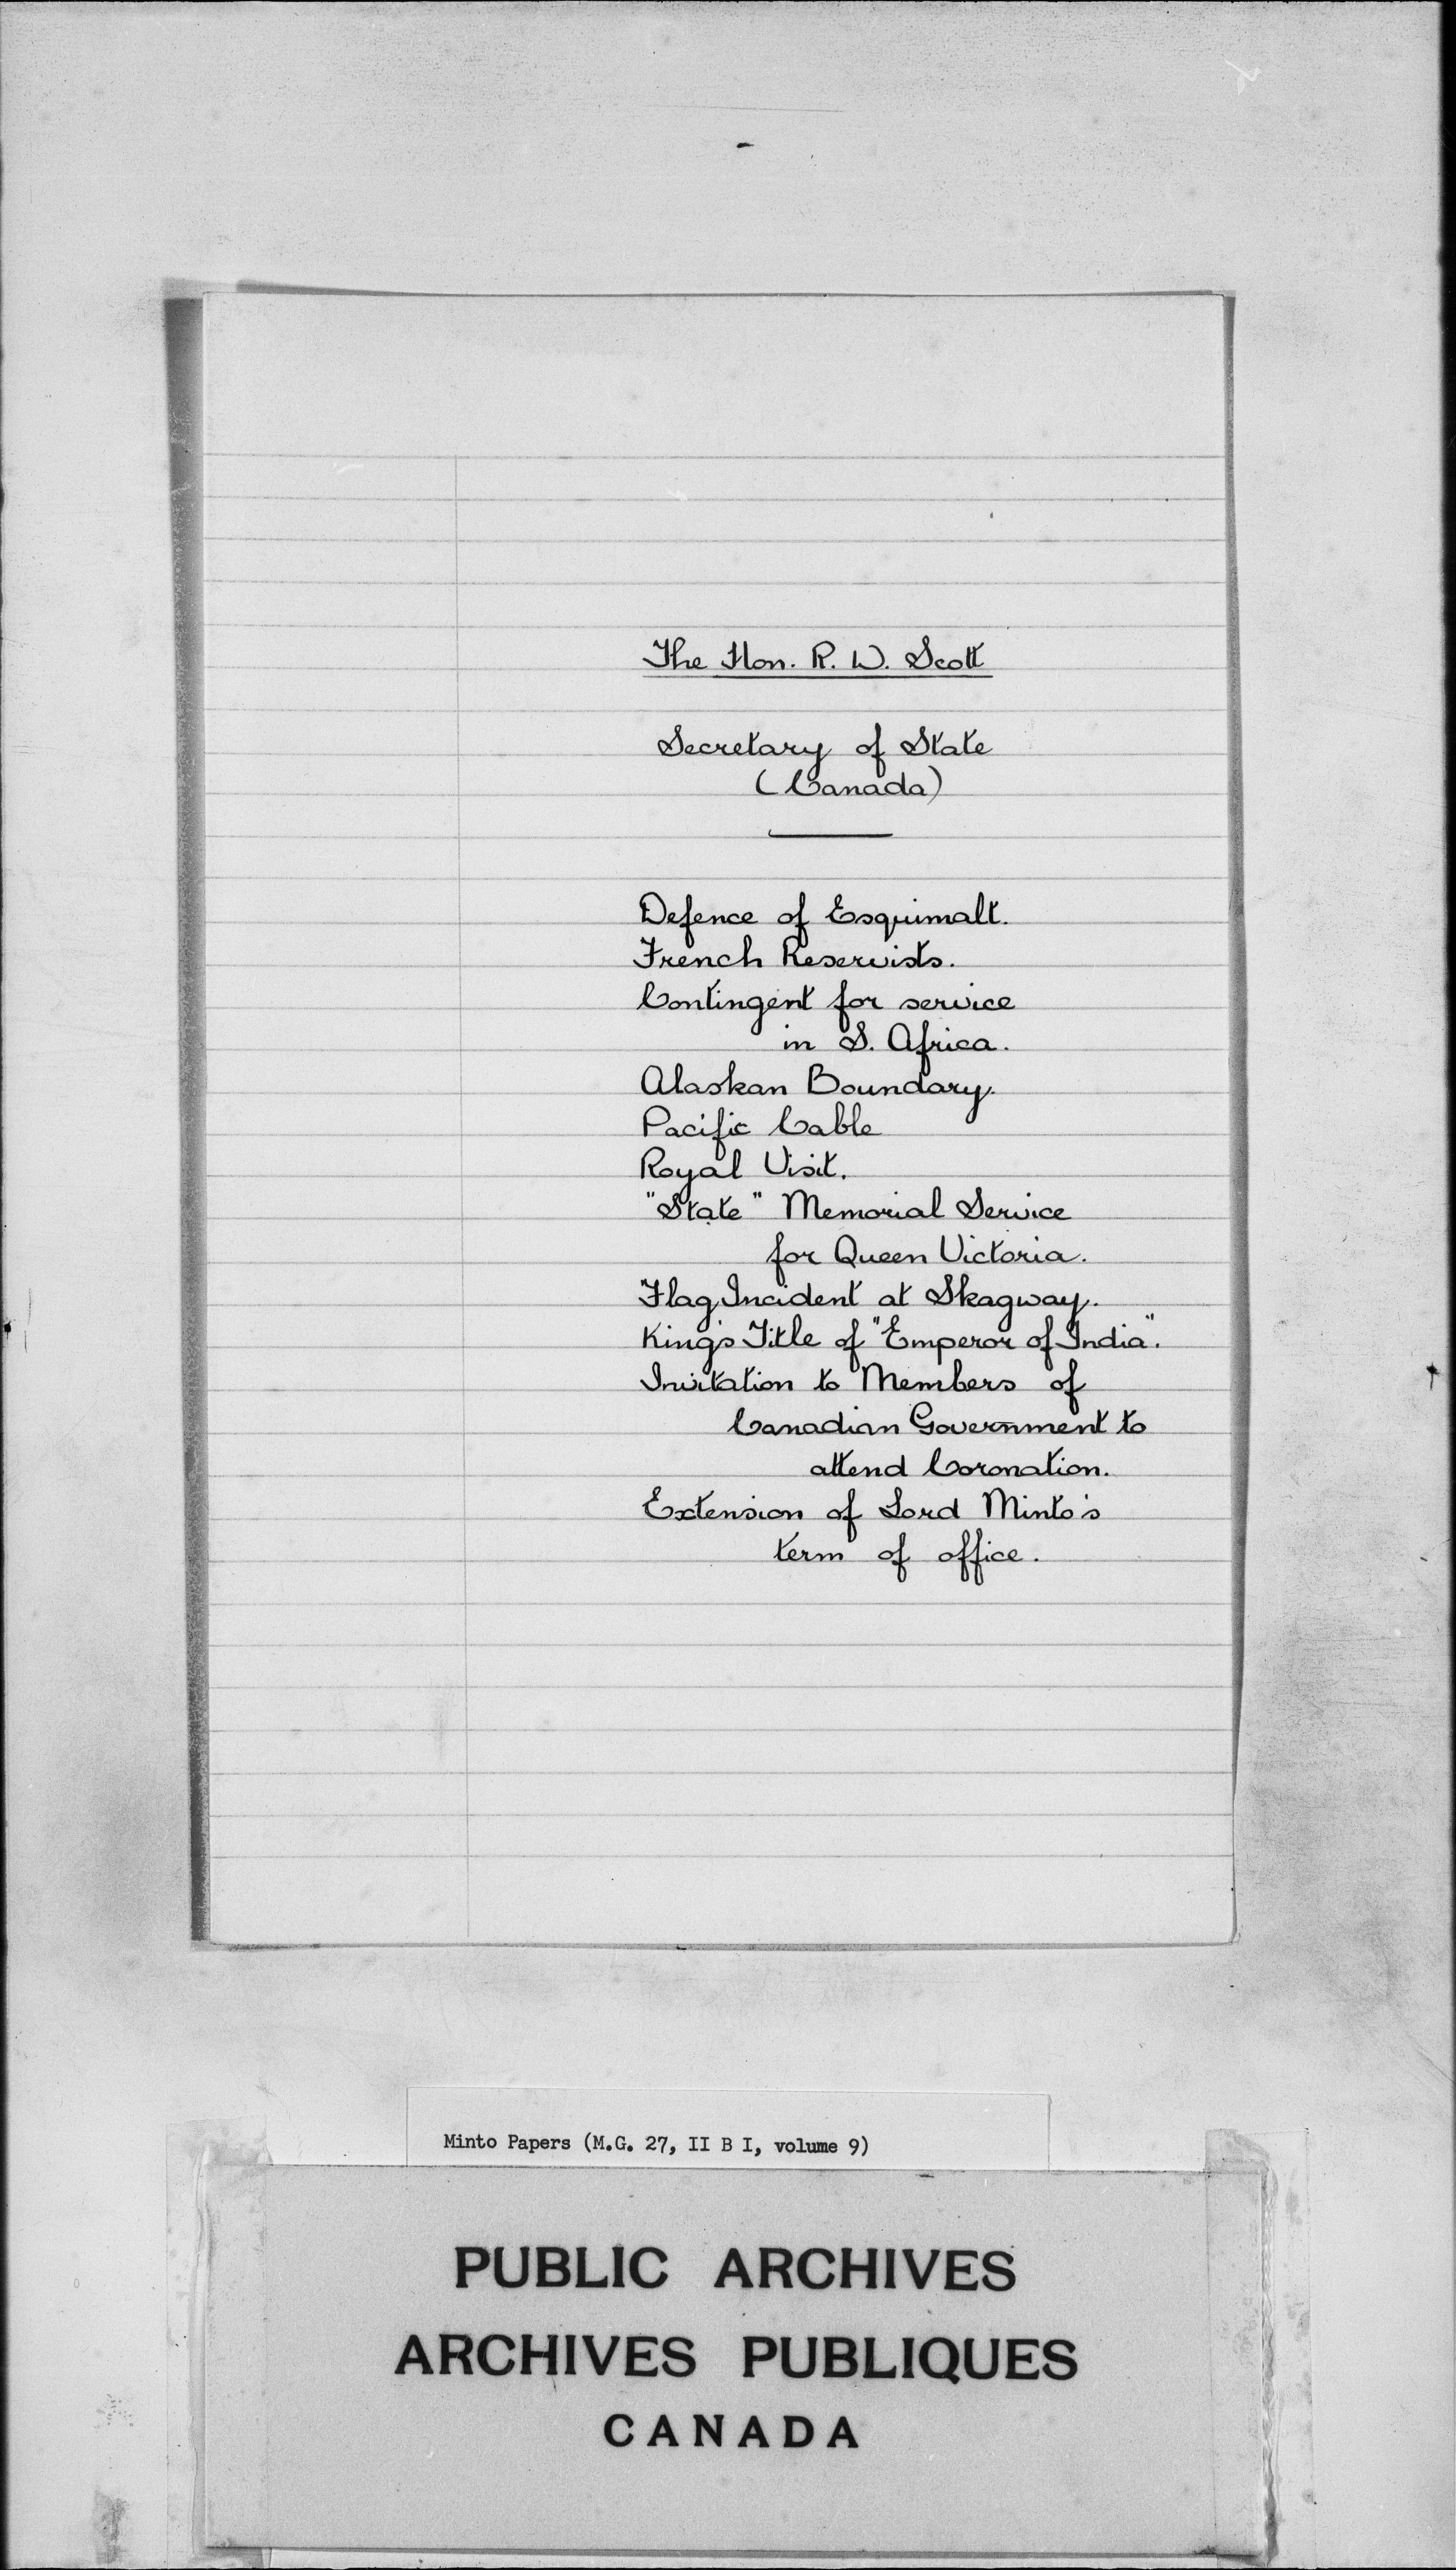 The Hon. R. W. Scott
Secretary of State
(Canada)
Defence of Esquimalt.
French Reservists.
Contingent for service
in S. Africa.
Alaskan Boundary.
Pacific Cable
Royal Visit.
"State" Memorial Service
for Queen Victoria.
Flag Incident at Skagway.
King's Title of "Emperor of India".
Invitation to Members of
Canadian Government to
attend Coronation.
Extension of Lord Minto's
term of office.
Minto Papers (M.G. 27, II B I, volume 9)
PUBLIC ARCHIVES
ARCHIVES PUBLIQUES
CANADA